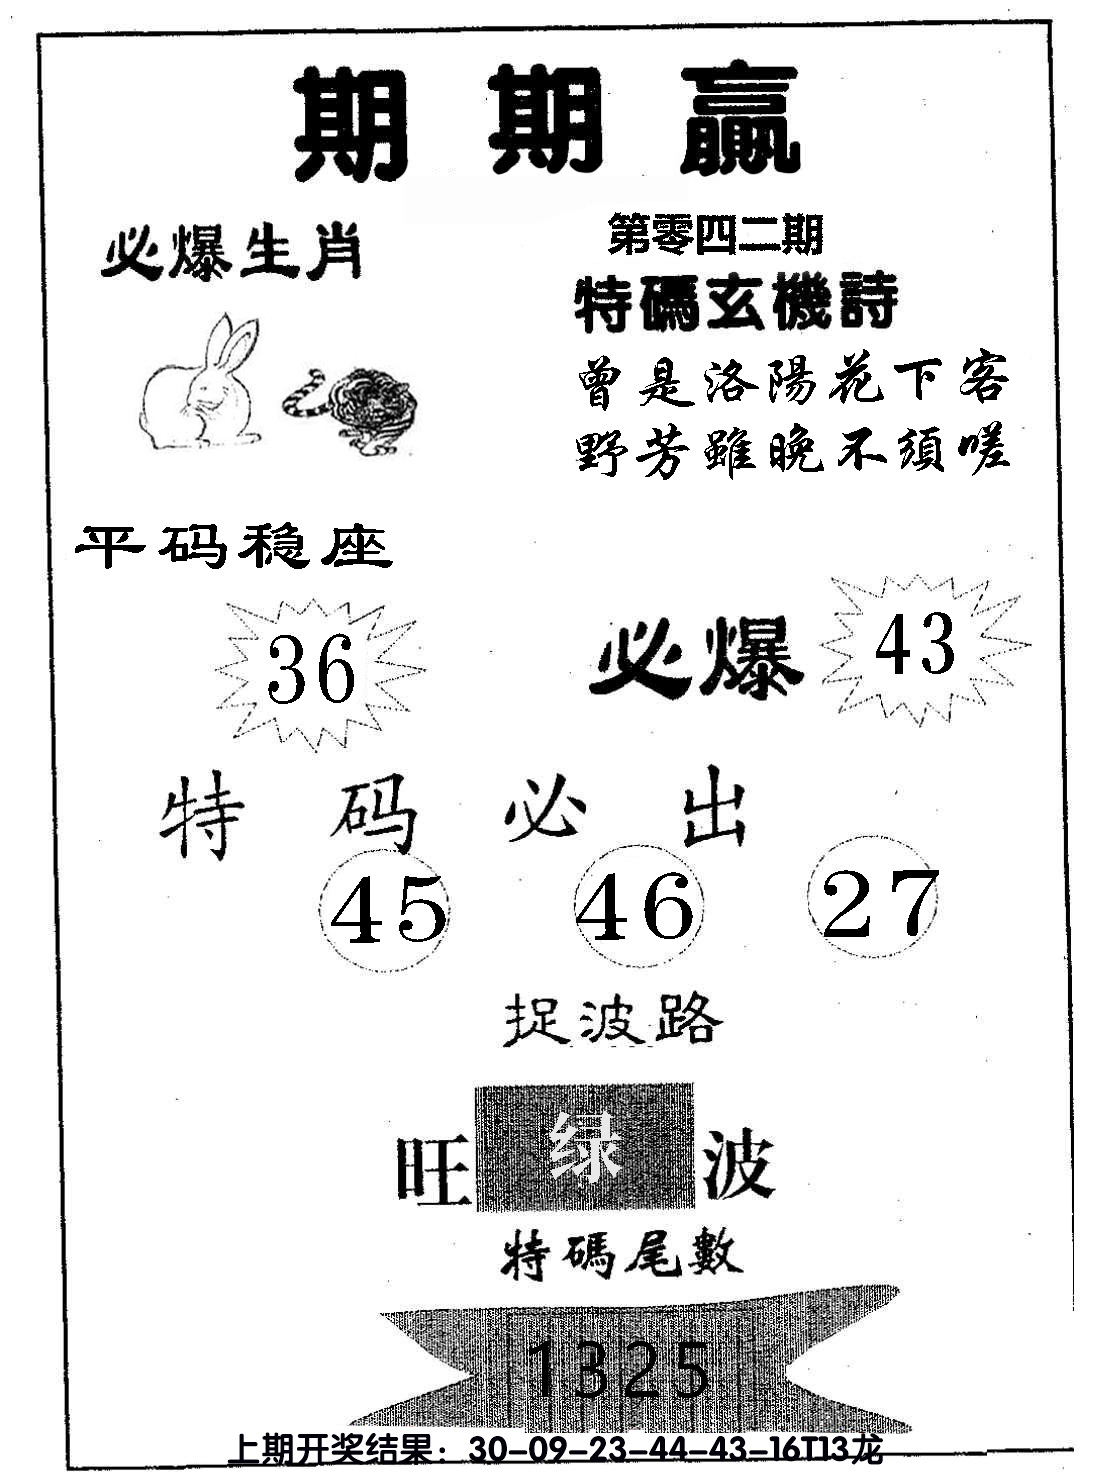 期期赢
必爆生肖
第零四二期
特碼玄機詩
曾是洛陽花下客
野芳雖晚不須嗟
平码稳座
36
必爆
43
特码必出
45 46 27
捉波路
旺绿波
特碼尾數
1325
上期开奖结果：30-09-23-44-43-16T13龙